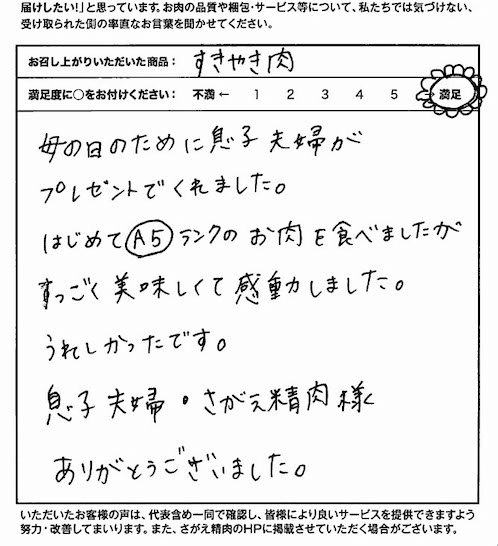 届けしたい！」と思っています。お肉の品質や梱包・サービス等について、私たちでは気づけない、
受け取られた側の率直なお言葉を聞かせてください。
お召し上がりいただいた商品： すきやき肉
満足度に○をお付けください： 不満 ← 1 2 3 4 5 → 満足
母の日のために息子夫婦が
プレゼントでくれました。
はじめて A5 ランクのお肉を食べましたが
すっごく美味しくて感動しました。
うれしかったです。
息子夫婦・さがえ精肉様
ありがとうございました。
いただいたお客様の声は、代表含め一同で確認し、皆様により良いサービスを提供できますよう
努力・改善してまいります。また、さがえ精肉のHPに掲載させていただく場合がございます。